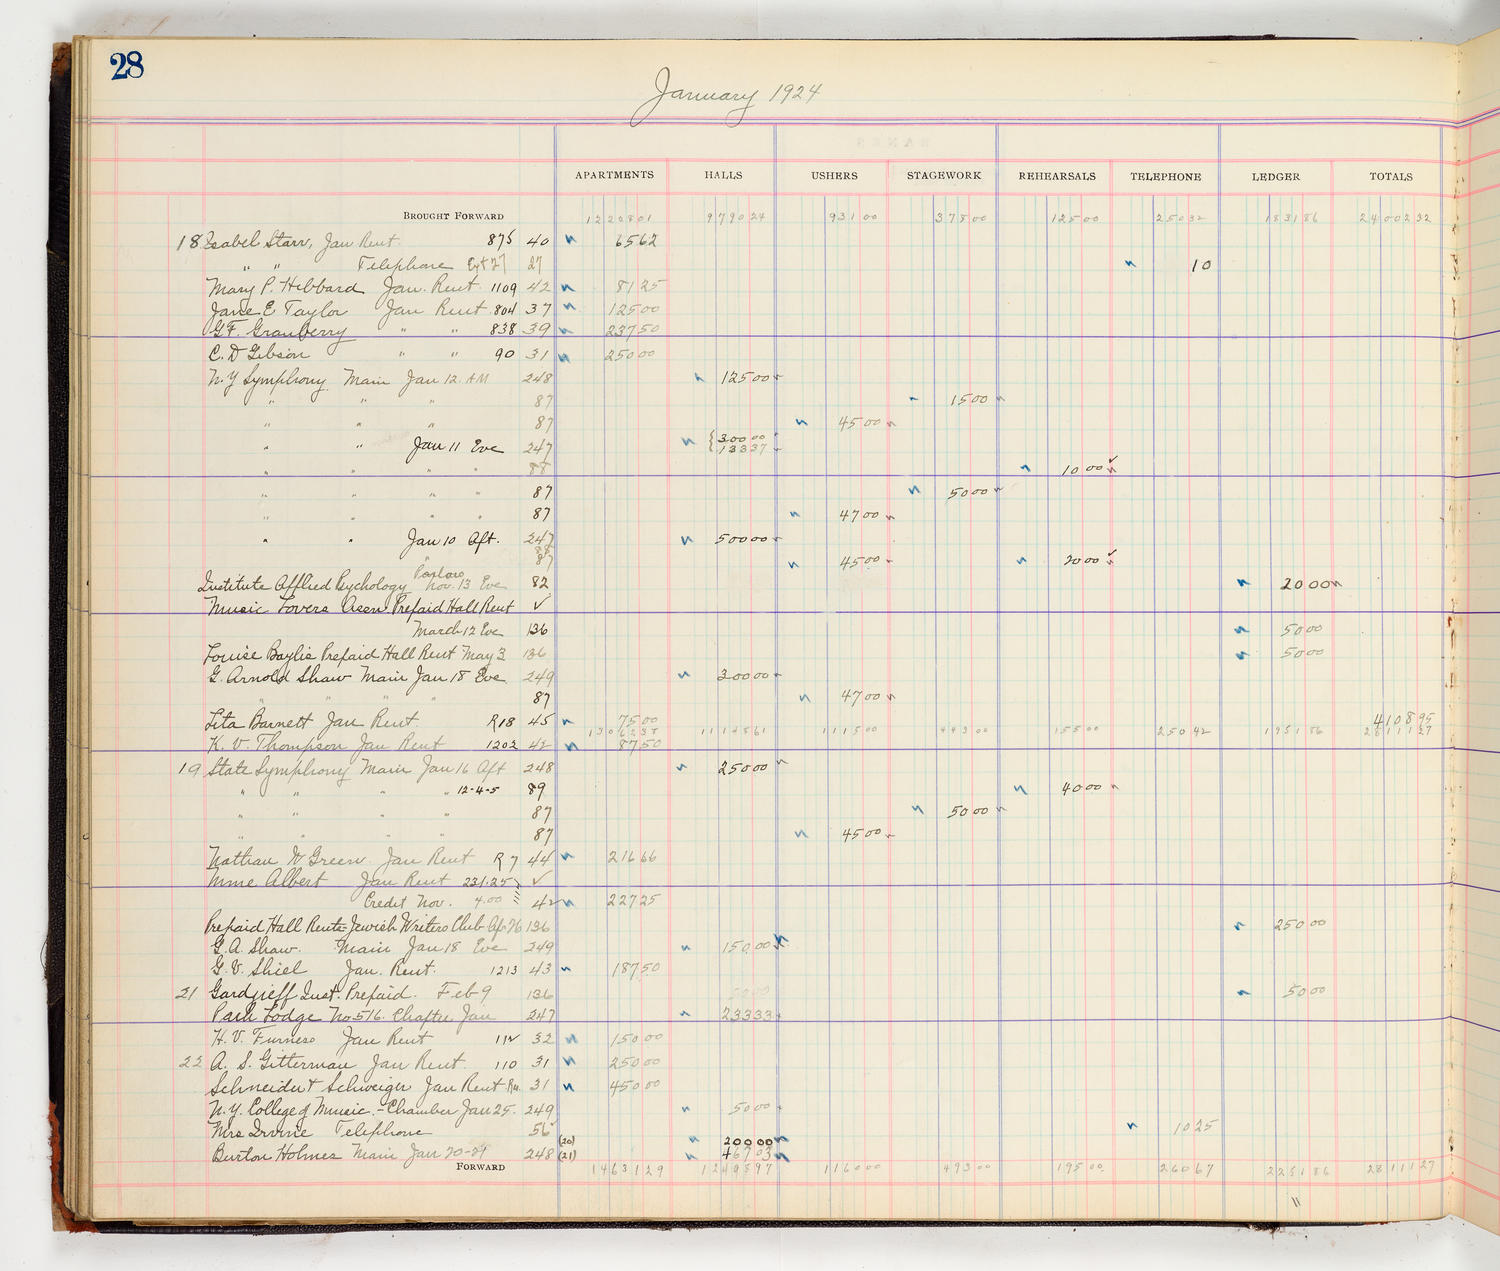 28
January 1924
APARTMENTS HALLS USHERS STAGEWORK REHEARSALS TELEPHONE LEDGER TOTALS
BROUGHT FORWARD 1222801 979024 93100 37800 12500 25032 183186 2400232
18 Isabel Starr, Jan Rent. 875 40 6562
" " Telephone Ext 27 27 10
Mary P. Hibbard Jan. Rent 1109 42 8125
Jane E Taylor Jan Rent 804 37 12500
G.F. Granberry " " 838 39 23750
C. D Gibson " " 90 31 25000
N.Y Symphony Main Jan 12. AM 248 12500
" " " 87 1500
" " " 87 4500
" " Jan 11 Eve 247 { 30000
13337
" " " " 88 1000
" " " " 87 5000
" " " " 87 4700
" " Jan 10 Aft. 247 50000
88
" 87 4500 2000
Institute Applied Psychology Nov. 13 Eve 82 2000
Music Lovers Assn. Prepaid Hall Rent ✓
March 12 Eve 136 5000
Louise Baylis Prepaid Hall Rent May 3 136 5000
G. Arnold Shaw Main Jan 18 Eve 249 30000
" " " " 87 4700
Lita Barnett Jan Rent R18 45 7500 410895
1306238 1114861 111500 44300 15500 25042 195186 2811127
K. V. Thompson Jan Rent 1202 42 8750
19 State Symphony Main Jan 16 Aft 248 25000
" " " " 12-4-5 89 4000
" " " " 87 5000
" " " " 87 4500
Nathan W Green Jan Rent R 7 44 21666
Mme Albert Jan Rent 231.25 ✓
Credit Nov. 4.00 42 22725
Prepaid Hall Rents-Jewish Writers Club Ap. 26 136 25000
G. A. Shaw. Main Jan 18 Eve 249 15000
G. V. Shiel Jan. Rent. 1213 43 18750
21 Gardjieff Inst. Prepaid. Feb 9 136 5000 5000
Park Lodge No 516. Chapter Jan 247 23333
H. V. Furness Jan Rent 112 32 15000
22 A. S. Gitterman Jan Rent 110 31 25000
Schneider & Schweiger Jan Rent 31 45000
N.Y. College of Music.-Chamber Jan 25. 249 5000
Mrs Irvine Telephone 56 1025
(20) 20000
Burton Holmes Main Jan 20-21 248 (21) 46703
FORWARD 1463129 1249897 116000 49300 19500 26067 225186 2811127
"